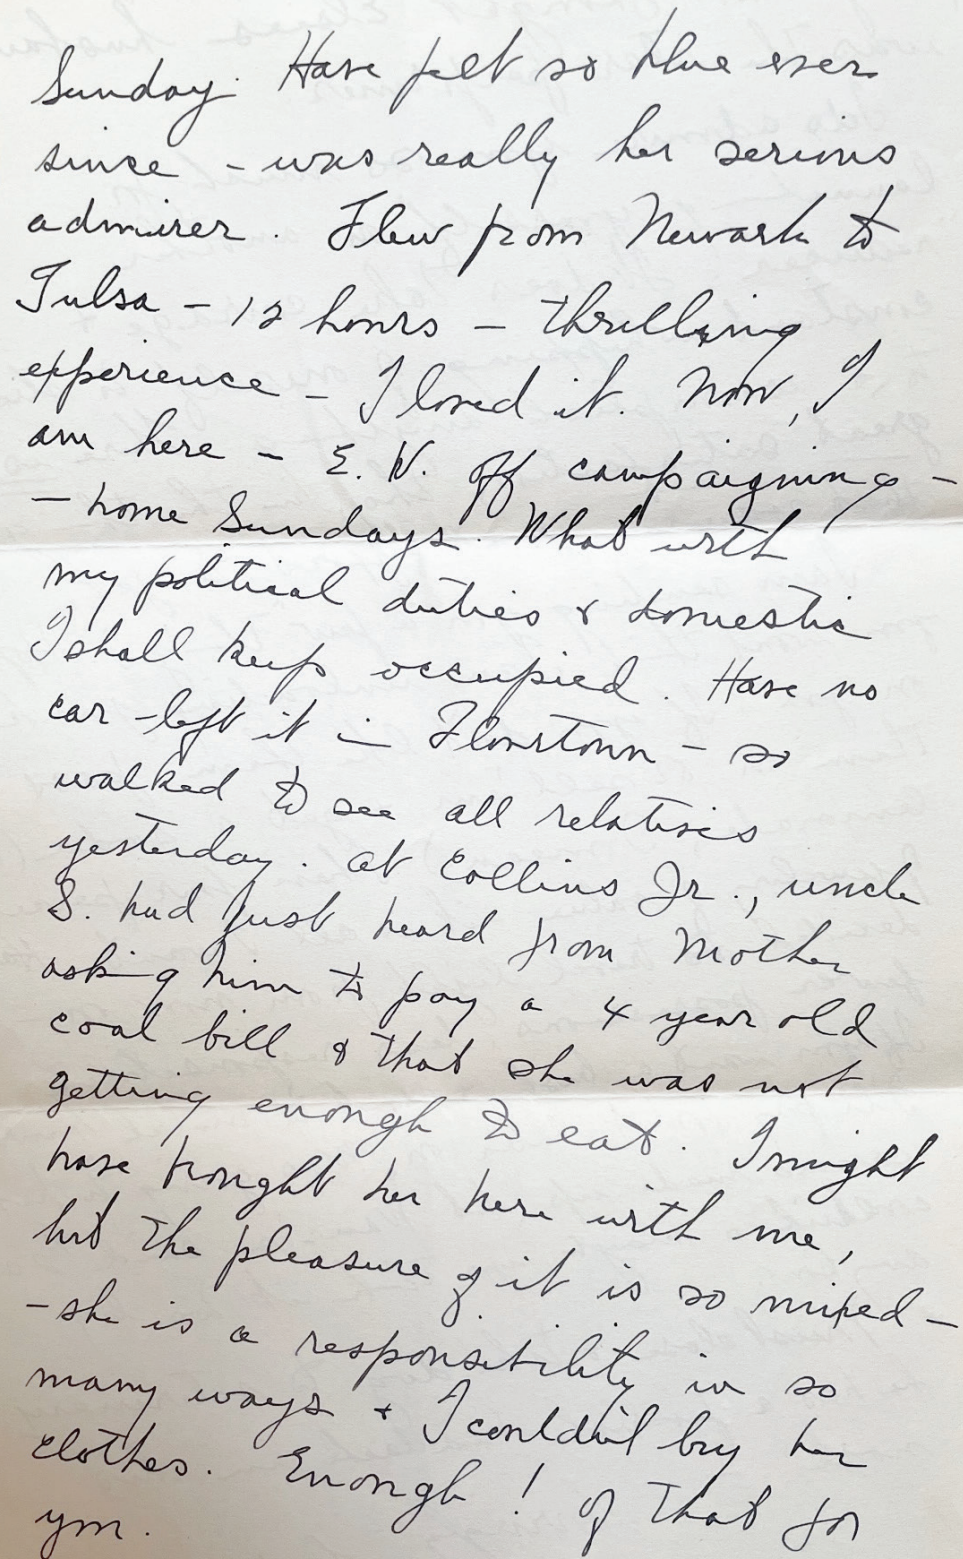 Sunday. Have felt so blue ever
since - was really her serious
admirer. Flew from Newark to
Tulsa - 12 hours - thrilling
experience - I loved it. Now, I
am here - E. W. off campaigning -
- home Sundays. What with
my political duties & domestic
I shall keep occupied. Have no
car - left it in Flourtown - so
walked to see all relatives
yesterday. At Collins Jr., Uncle
S. had just heard from Mother
asking him to pay a 4 year old
coal bill & that she was not
getting enough to eat. I might
have brought her here with me,
but the pleasure of it is so mixed -
- she is a responsibility in so
many ways & I couldn't buy her
clothes. Enough! of that for
you.